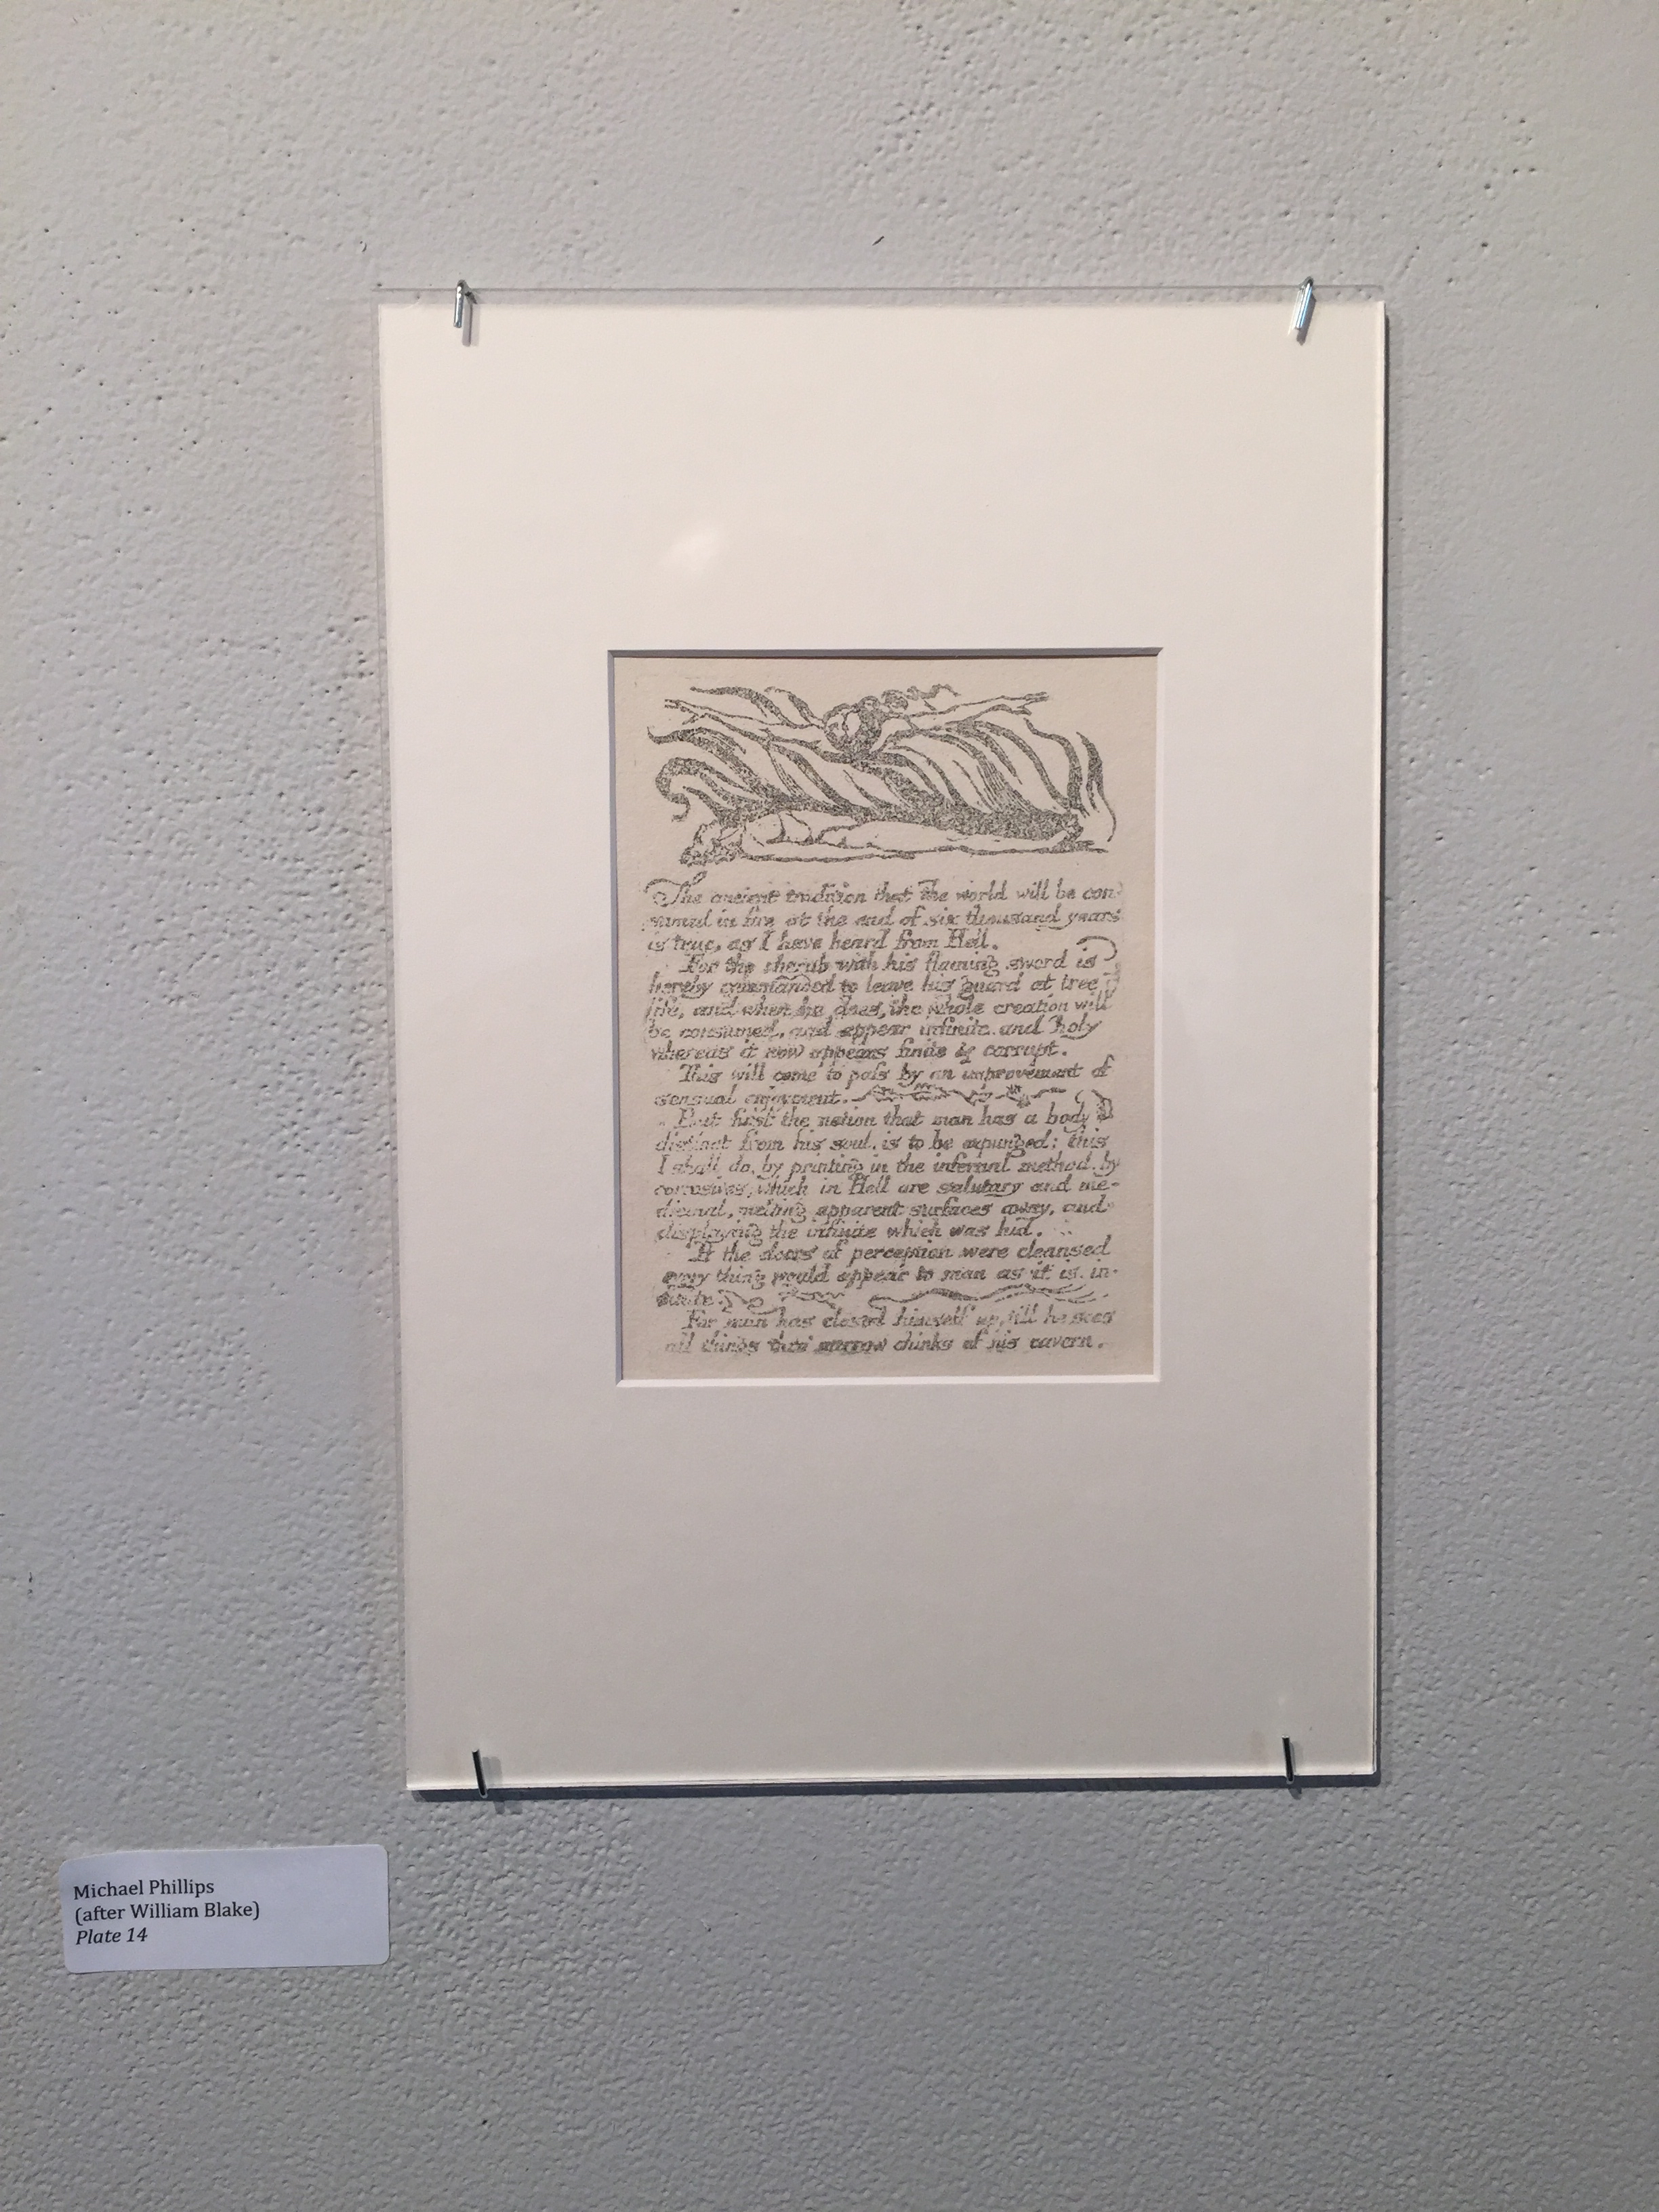 The ancient tradition that the world will be con-
sumed in fire at the end of six thousand years
is true, as I have heard from Hell.
For the cherub with his flaming sword is
hereby commanded to leave his guard at tree of
life, and when he does, the whole creation will
be consumed, and appear infinite. and holy
whereas it now appears finite & corrupt.
This will come to paſs by an improvement of
sensual enjoyment.
But first the notion that man has a body
distinct from his soul, is to be expunged; this
I shall do, by printing in the infernal method, by
corrosives, which in Hell are salutary and me-
dicinal, melting apparent surfaces away, and
displaying the infinite which was hid.
If the doors of perception were cleansed
every thing would appear to man as it is, in-
finite.
For man has closed himself up, till he sees
all things thro' narrow chinks of his cavern.
Michael Phillips
(after William Blake)
Plate 14